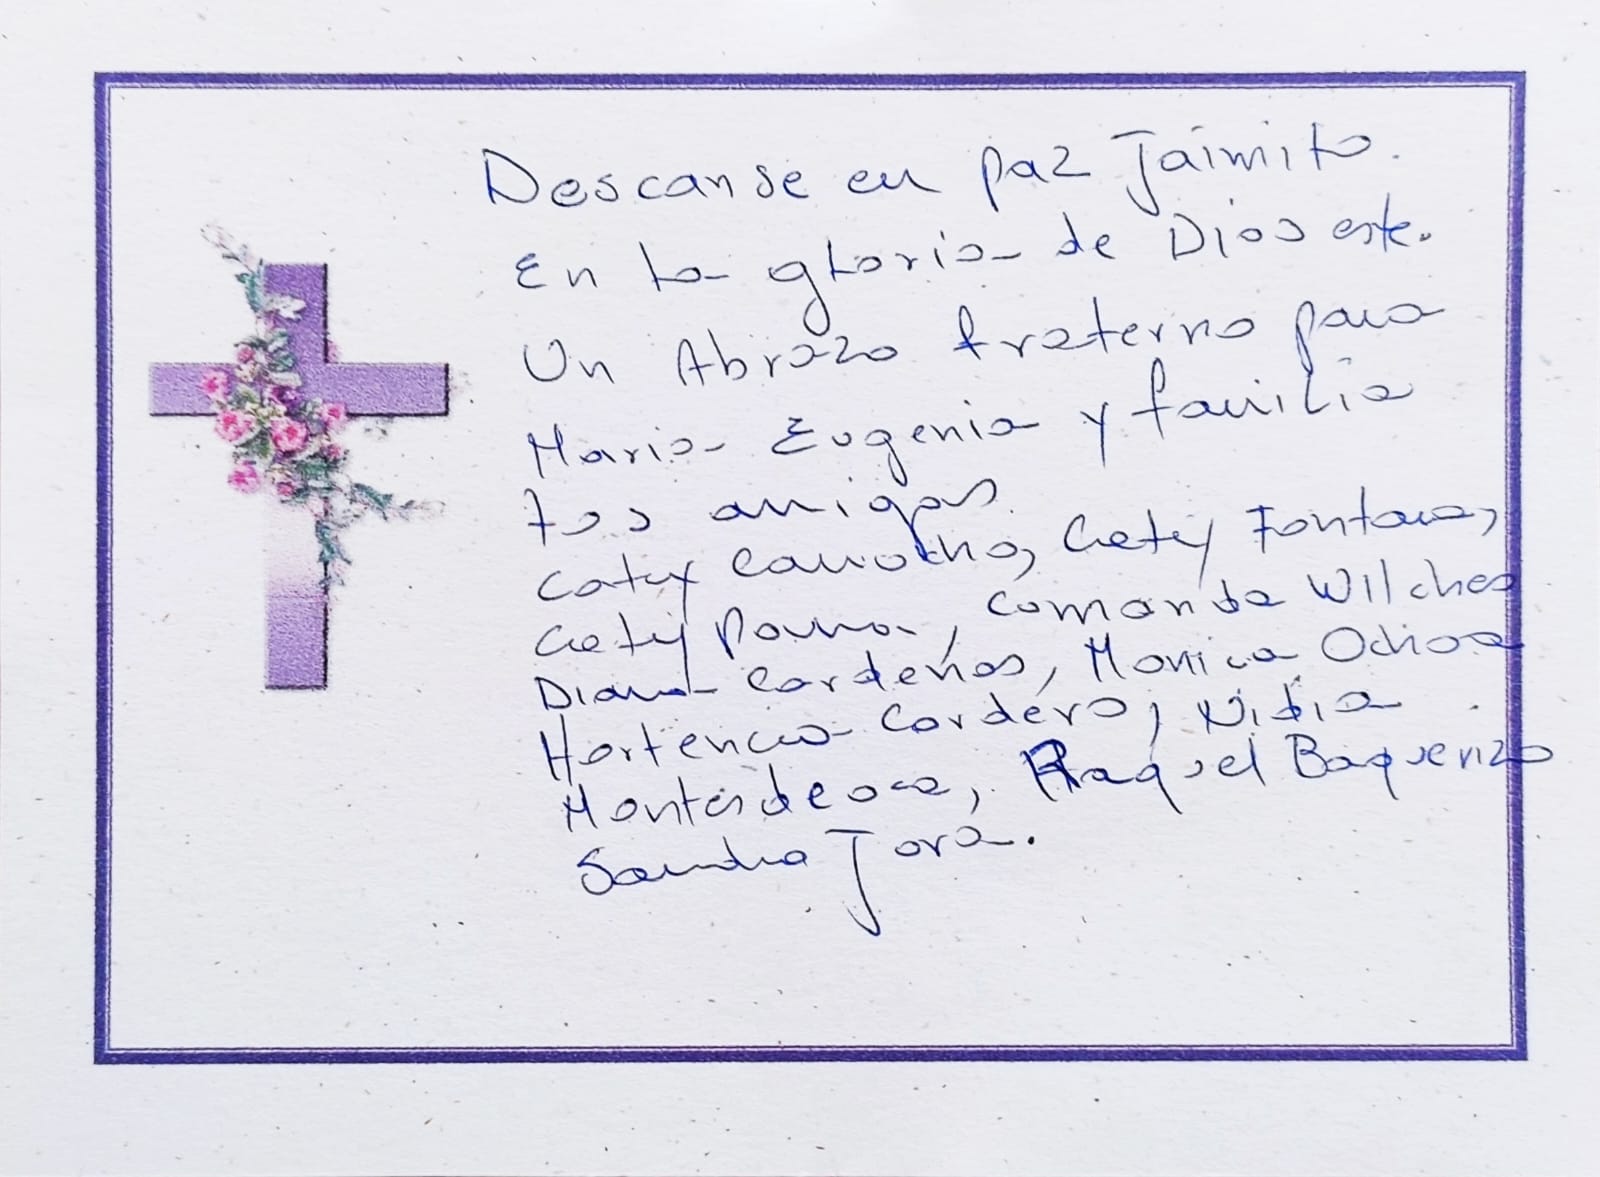 Descanse en paz Jaimito.
En la gloria de Dios este.
Un Abrazo fraterno para
Maria Eugenia y familia
tus amigas
Caty Camacho, Caty Fontana,
Caty Parra, Comanda Wilches
Diana Cardenas, Monica Ochoa
Hortencia Cordero, Nidia
Montesdeoca, Raquel Baquerizo
Sandra Jara.